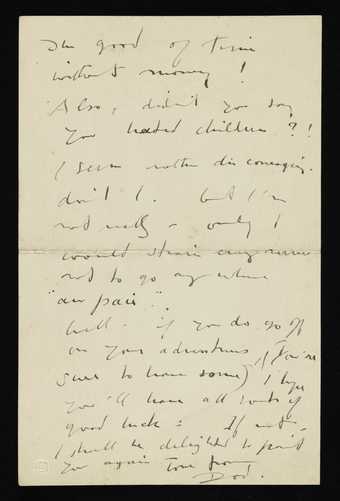 good of time
without money!
Also, didn't you say
you hated children?!
I seem rather discouraging.
don't I. but I'm
not really – only I
would strain any nerve
not to go anywhere
"au pair".
Well. if you do go off
on your adventures, (You're
sure to have some) I hope
you'll have all sorts of
good luck: If not,
I shall be delighted to paint
you again
Dod.